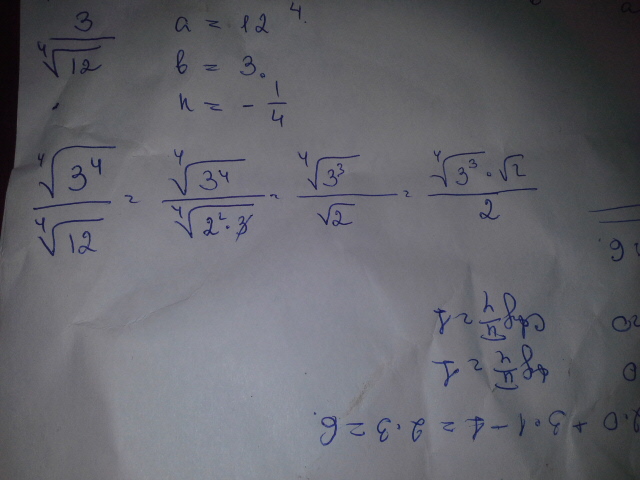 3/⁴√12 a = 12 4.
в = 3.
n = - 1/4
⁴√3⁴/⁴√12 = ⁴√3⁴/⁴√2²·3 = ⁴√3³/√2 = ⁴√3³·√2/2
6.
ctg π/4 = 1
tg π/4 = 1
2·0 + 3·1 - 4 = 2·3 = 6.